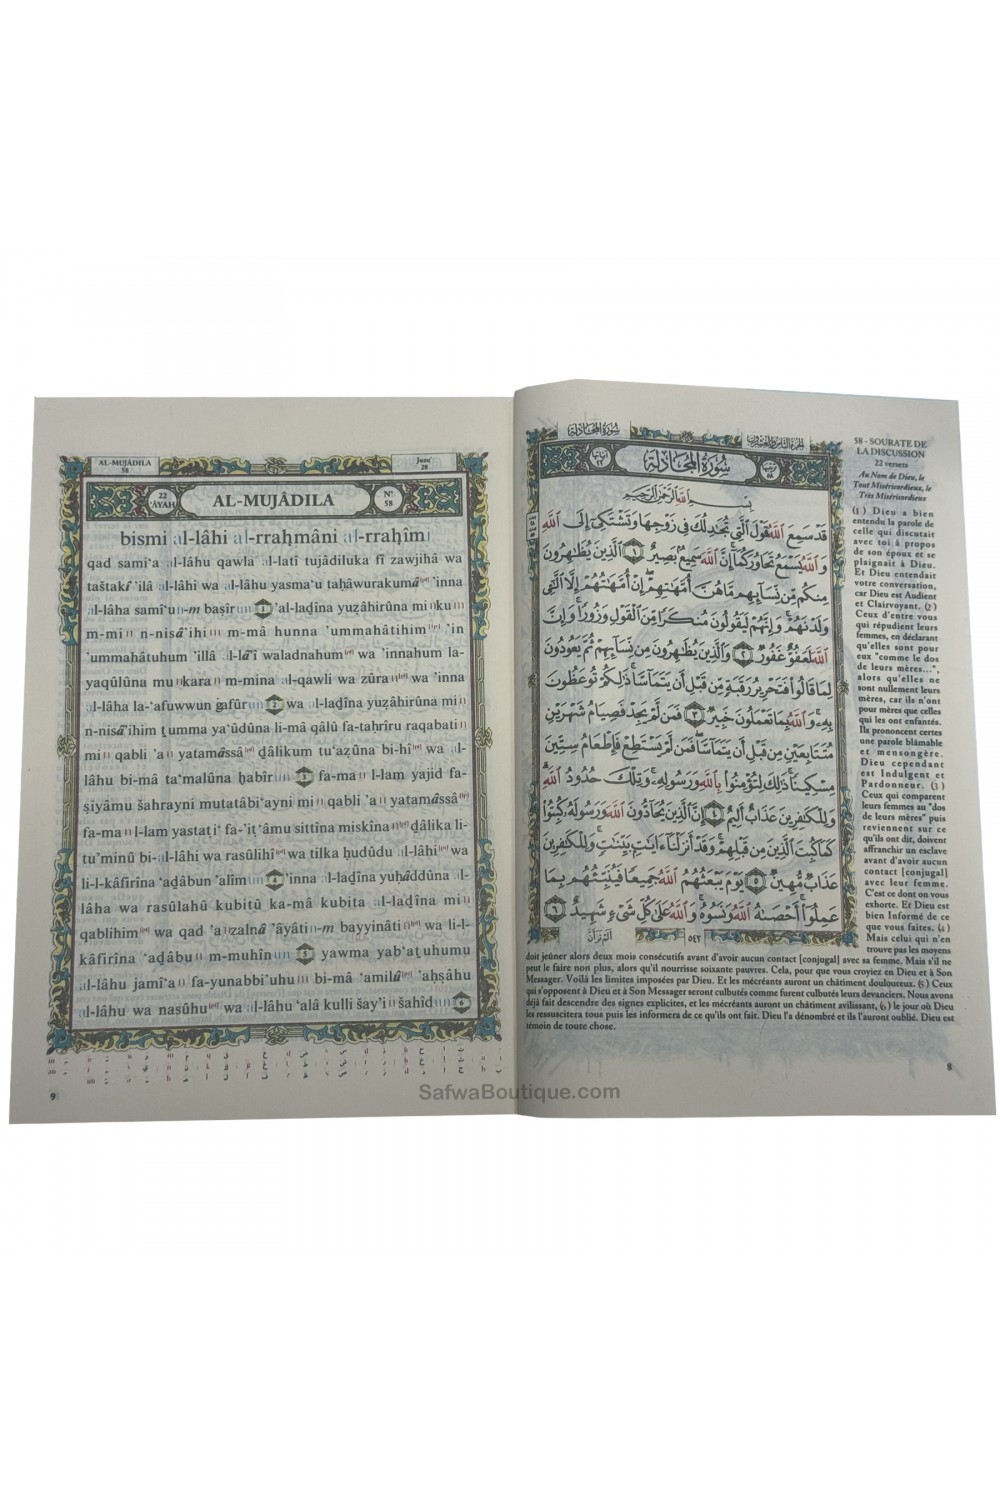 AL-MUJÂDILA
58
Juzu'
28
22
'ÂYAH
AL-MUJÂDILA
N°
58
bismi al-lâhi al-rraḥmâni al-rraḥîmi
qad sami‘a al-lâhu qawla al-latî tujâdiluka fî zawjihâ wa
taštakî 'ilâ al-lâhi wa al-lâhu yasma‘u taḥâwurakumâ 'inna
al-lâha samî‘un-m baṣîrun 1 'al-laḏîna yuẓâhirûna minkum
m-min n-nisâ'ihim m-mâ hunna 'ummahâtihim 'in
'ummahâtuhum 'illâ al-lâ'î waladnahum wa 'innahum la-
yaqûlûna munkaran m-mina al-qawli wa zûran wa 'inna
al-lâha la-‘afuwwun ġafûrun 2 wa al-laḏîna yuẓâhirûna min
n-nisâ'ihim ṯumma ya‘ûdûna li-mâ qâlû fa-taḥrîru raqabatin
m-min qabli 'an yatamâssâ ḏâlikum tu‘aẓûna bi-hî wa al-
lâhu bi-mâ ta‘malûna ḫabîrun 3 fa-man l-lam yajid fa-
ṣiyâmu šahrayni mutatâbi‘ayni min qabli 'an yatamâssâ
fa-man l-lam yastaṭi‘ fa-'iṭ‘âmu sittîna miskînan ḏâlika li-
tu'minû bi-al-lâhi wa rasûlihî wa tilka ḥudûdu al-lâhi wa
li-l-kâfirîna ‘aḏâbun 'alîmun 4 'inna al-laḏîna yuḥâddûna al-
lâha wa rasûlahû kubitû ka-mâ kubita al-laḏîna min
qablihim wa qad 'anzalnâ 'âyâtin-m bayyinâtin wa li-l-
kâfirîna ‘aḏâbun m-muhînun 5 yawma yab‘aṯuhumu
al-lâhu jamî‘an fa-yunabbi'uhum bi-mâ ‘amilû 'aḥṣâhu
al-lâhu wa nasûhu wa al-lâhu ‘alâ kulli šay'in šahîdun 6
9
سُورَةُ المُجَادلة
الجزء الثامن والعشرون
سُورَةُ المُجَادلة
بِسْمِ اللَّهِ الرَّحْمَٰنِ الرَّحِيمِ
قَدْ سَمِعَ اللَّهُ قَوْلَ الَّتِي تُجَادِلُكَ فِي زَوْجِهَا وَتَشْتَكِي إِلَى اللَّهِ
وَاللَّهُ يَسْمَعُ تَحَاوُرَكُمَا إِنَّ اللَّهَ سَمِيعٌ بَصِيرٌ ١ الَّذِينَ يُظَاهِرُونَ
مِنكُم مِّن نِّسَائِهِم مَّا هُنَّ أُمَّهَاتِهِمْ إِنْ أُمَّهَاتُهُمْ إِلَّا اللَّائِي
وَلَدْنَهُمْ وَإِنَّهُمْ لَيَقُولُونَ مُنكَرًا مِّنَ الْقَوْلِ وَزُورًا وَإِنَّ
اللَّهَ لَعَفُوٌّ غَفُورٌ ٢ وَالَّذِينَ يُظَاهِرُونَ مِن نِّسَائِهِمْ ثُمَّ يَعُودُونَ
لِمَا قَالُوا فَتَحْرِيرُ رَقَبَةٍ مِّن قَبْلِ أَن يَتَمَاسَّا ذَٰلِكُمْ تُوعَظُونَ
بِهِ وَاللَّهُ بِمَا تَعْمَلُونَ خَبِيرٌ ٣ فَمَن لَّمْ يَجِدْ فَصِيَامُ شَهْرَيْنِ
مُتَتَابِعَيْنِ مِن قَبْلِ أَن يَتَمَاسَّا فَمَن لَّمْ يَسْتَطِعْ فَإِطْعَامُ سِتِّينَ
مِسْكِينًا ذَٰلِكَ لِتُؤْمِنُوا بِاللَّهِ وَرَسُولِهِ وَتِلْكَ حُدُودُ اللَّهِ
وَلِلْكَافِرِينَ عَذَابٌ أَلِيمٌ ٤ إِنَّ الَّذِينَ يُحَادُّونَ اللَّهَ وَرَسُولَهُ كُبِتُوا
كَمَا كُبِتَ الَّذِينَ مِن قَبْلِهِمْ وَقَدْ أَنزَلْنَا آيَاتٍ بَيِّنَاتٍ وَلِلْكَافِرِينَ
عَذَابٌ مُّهِينٌ ٥ يَوْمَ يَبْعَثُهُمُ اللَّهُ جَمِيعًا فَيُنَبِّئُهُم بِمَا
عَمِلُوا أَحْصَاهُ اللَّهُ وَنَسُوهُ وَاللَّهُ عَلَىٰ كُلِّ شَيْءٍ شَهِيدٌ ٦
٥٤٢
58 - SOURATE DE
LA DISCUSSION
22 versets
Au Nom de Dieu, le
Tout Miséricordieux, le
Très Miséricordieux
(1) Dieu a bien
entendu la parole de
celle qui discutait
avec toi à propos
de son époux et se
plaignait à Dieu.
Et Dieu entendait
votre conversation,
car Dieu est Audient
et Clairvoyant. (2)
Ceux d'entre vous
qui répudient leurs
femmes, en déclarant
qu'elles sont pour
eux "comme le dos
de leurs mères"...,
alors qu'elles ne
sont nullement leurs
mères, car ils n'ont
pour mères que celles
qui les ont enfantés.
Ils prononcent certes
une parole blâmable
et mensongère.
Dieu cependant
est Indulgent et
Pardonneur. (3)
Ceux qui comparent
leurs femmes au "dos
de leurs mères" puis
reviennent sur ce
qu'ils ont dit, doivent
affranchir un esclave
avant d'avoir aucun
contact [conjugal]
avec leur femme.
C'est ce dont on vous
exhorte. Et Dieu est
bien Informé de ce
que vous faites. (4)
Mais celui qui n'en
trouve pas les moyens
doit jeûner alors deux mois consécutifs avant d'avoir aucun contact [conjugal] avec sa femme. Mais s'il ne
peut le faire non plus, alors qu'il nourrisse soixante pauvres. Cela, pour que vous croyiez en Dieu et à Son
Messager. Voilà les limites imposées par Dieu. Et les mécréants auront un châtiment douloureux. (5) Ceux
qui s'opposent à Dieu et à Son Messager seront culbutés comme furent culbutés leurs devanciers. Nous avons
déjà fait descendre des signes explicites, et les mécréants auront un châtiment avilissant, (6) le jour où Dieu
les ressuscitera tous puis les informera de ce qu'ils ont fait. Dieu l'a dénombré et ils l'auront oublié. Dieu est
témoin de toute chose.
8
SafwaBoutique.com